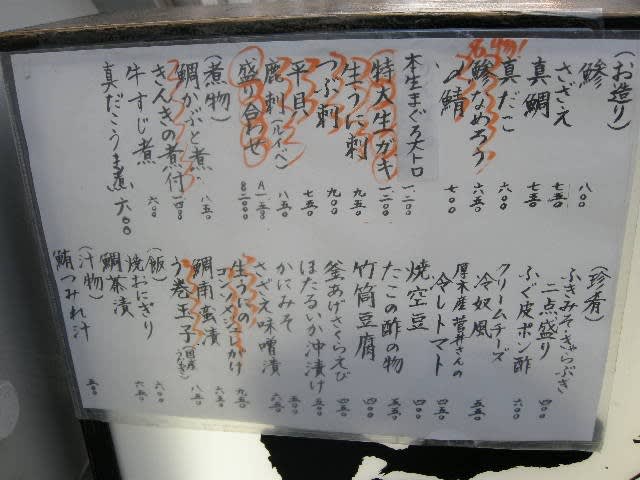 (お造り)
鯵 八〇〇
さざえ 七五〇
真鯛 七五〇
真だこ 六〇〇
名物!
鯵なめろう 六五〇
〆鯖 七〇〇
本生まぐろ大トロ 一二〇〇
特大生ガキ 一二〇〇
生うに刺 九五〇
つぶ刺 九〇〇
平貝 七五〇
鹿刺(ルイベ) 八五〇
盛り合わせ A一一五〇 B二一〇〇
(煮物)
鯛かぶと煮 八五〇
きんきの煮付
牛すじ煮 六〇〇
真だこうま煮 六〇〇
(珍肴)
ふきみそきゃらぶき
二点盛り 四〇〇
ふぐ皮ポン酢 六〇〇
クリームチーズ
冷奴風 五五〇
厚木産菅井さんの
冷しトマト 四五〇
焼空豆 四〇〇
たこの酢の物 五五〇
竹筒豆腐 四〇〇
釜あげさくらえび 四五〇
ほたるいか沖漬け 五五〇
かにみそ 五〇〇
さざえ味噌漬 六五〇
生うにの
コンソメジュレがけ 九五〇
鯛南蛮漬 六五〇
う巻玉子(国産うなぎ) 八五〇
(飯)
焼おにぎり 六〇〇
鯛茶漬 六五〇
(汁物)
鮪つみれ汁 五〇〇